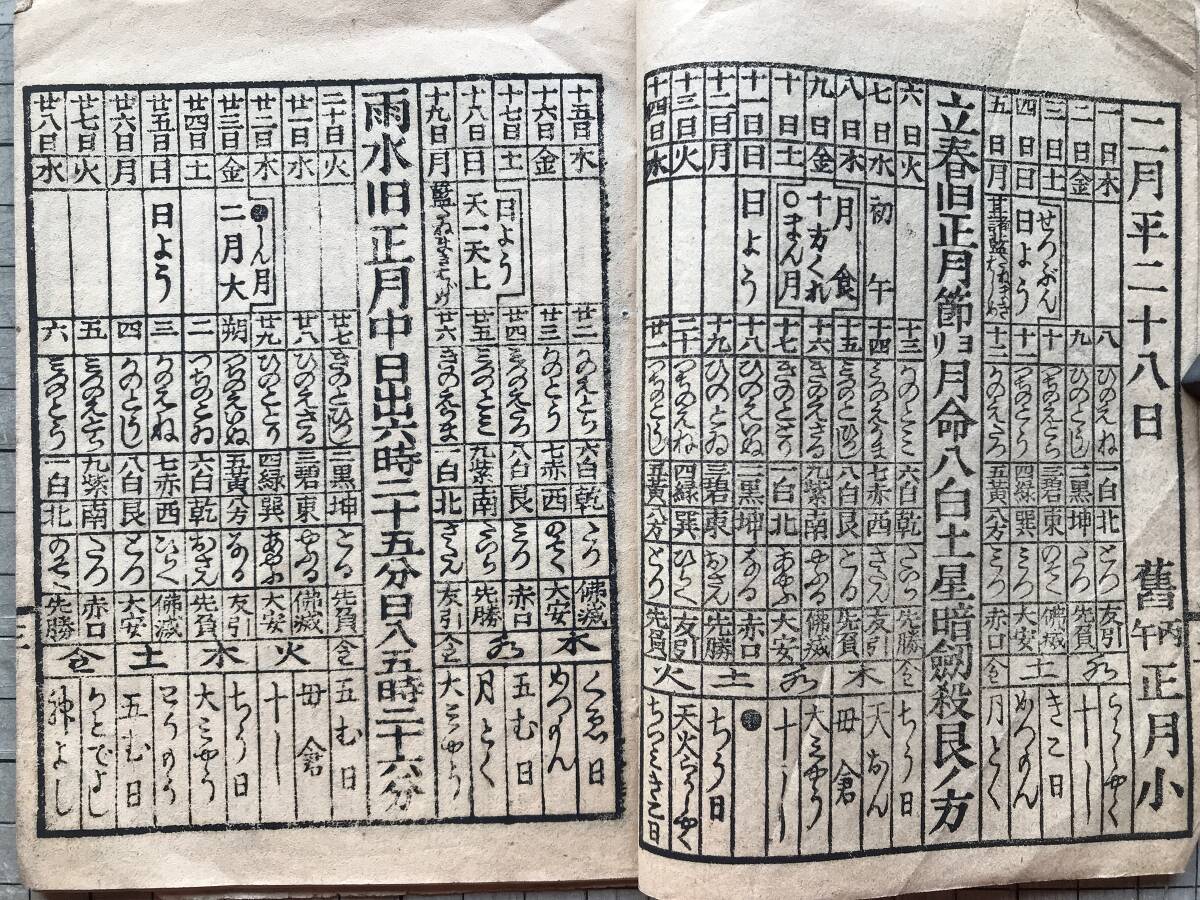 二月平二十八日 舊丙午正月小
一日木 八 ひのえね 一白北 とつ 友引 水
二日金 九 ひのとうし 二黒坤 たつ 先負 十し
三日土 せつぶん 十 つちのえとら 三碧東 のそく 佛滅 土 きこ日
四日日 日よう 十一 つちのとう 四緑巽 みつ 大安 めつもん
五日月 十二 かのえたつ 五黄八方 みつ 赤口 金 月とく
立春旧正月節ヨリ月命八白土星暗劔殺艮ノ方
六日火 十三 かのとミ 六白乾 たいら 先勝 金 ちう日
七日水 初午 十四 みつのえうま 七赤西 さたん 友引 木 天おん
八日木 月食 十五 みつのとひつし 八白艮 とる 先負 母倉
九日金 十方くれ 十六 きのえさる 九紫南 やふる 佛滅 水 大ミやう
十日土 ○まん月 十七 きのととり 一白北 あやふ 大安 十し
十一日日 日よう 十八 ひのえいぬ 二黒坤 なる 赤口 土
十二日月 十九 ひのとゐ 三碧東 おさん 先勝 ちう日
十三日火 二十 つちのえね 四緑巽 ひらく 友引 火
十四日水 廿一 つちのとうし 五黄八方 とつ 先負
十五日木 廿二 かのえとら 六白乾 たつ 佛滅 木 くゑ日
十六日金 廿三 かのとう 七赤西 のそく 大安 めつもん
十七日土 日よう 廿四 みつのえたつ 八白艮 みつ 赤口 水 五む日
十八日日 天一天上 廿五 みつのとミ 九紫南 たいら 先勝 月とく
十九日月 廿六 きのえうま 一白北 さたん 友引 金 大ミやう
雨水旧正月中日出六時二十五分日入五時二十六分
二十日火 廿七 きのとひつし 二黒坤 とる 先負 金 五む日
廿一日水 廿八 ひのえさる 三碧東 やふる 佛滅 火 母倉
廿二日木 ●しん月 廿九 ひのととり 四緑巽 あやふ 大安 十し
廿三日金 二月大 朔 つちのえいぬ 五黄八方 なる 友引 木 ちう日
廿四日土 二 つちのとゐ 六白乾 おさん 先負 大ミやう
廿五日日 日よう 三 かのえね 七赤西 ひらく 佛滅 土
廿六日月 四 かのとうし 八白艮 とつ 大安 五む日
廿七日火 五 みつのえとら 九紫南 たつ 赤口 金 かとでよし
廿八日水 六 みつのとう 一白北 のそく 先勝 神よし